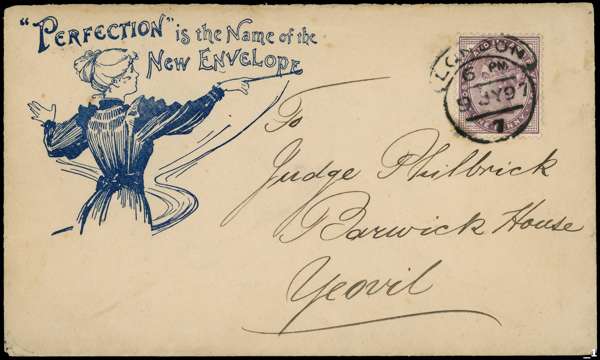 "PERFECTION" is the Name of the
NEW ENVELOPE
LONDON
6 PM
9 JY 97
7
To
Judge Philbrick
Barwick House
Yeovil